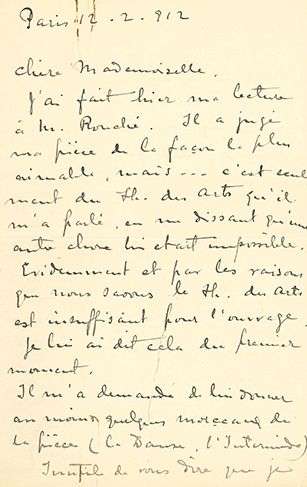 Paris 12 . 2 . 912
chère Mademoiselle.
J'ai fait hier ma lecture
à M. Rouché. Il a jugé
ma pièce de la façon la plus
aimable, mais --- c'est seule
ment du Th. des Arts qu'il
m'a parlé, en me dissant qu'une
autre chose lui etait impossible.
Evidemment et par les raisons
que nous savons le Th. des Arts
est insuffisant pour l'ouvrage
Je lui ai dit cela du premier
moment.
Il m'a demandé de lui donner
au moins quelques morceaux de
la pièce (la Danse, l'Intermède)
Inutil de vous dire que je